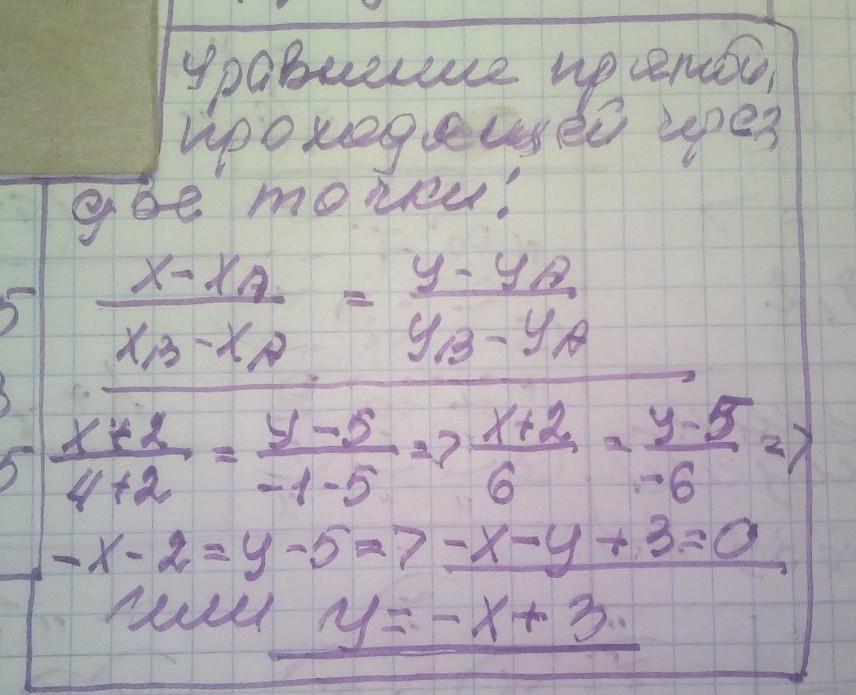 Уравнение прямой,
проходящей через
две точки:
x-xA / xB-xA = y-yA / yB-yA
x+2 / 4+2 = y-5 / -1-5 => x+2 / 6 = y-5 / -6 =>
-x-2=y-5=> -x-y+3=0
или y=-x+3